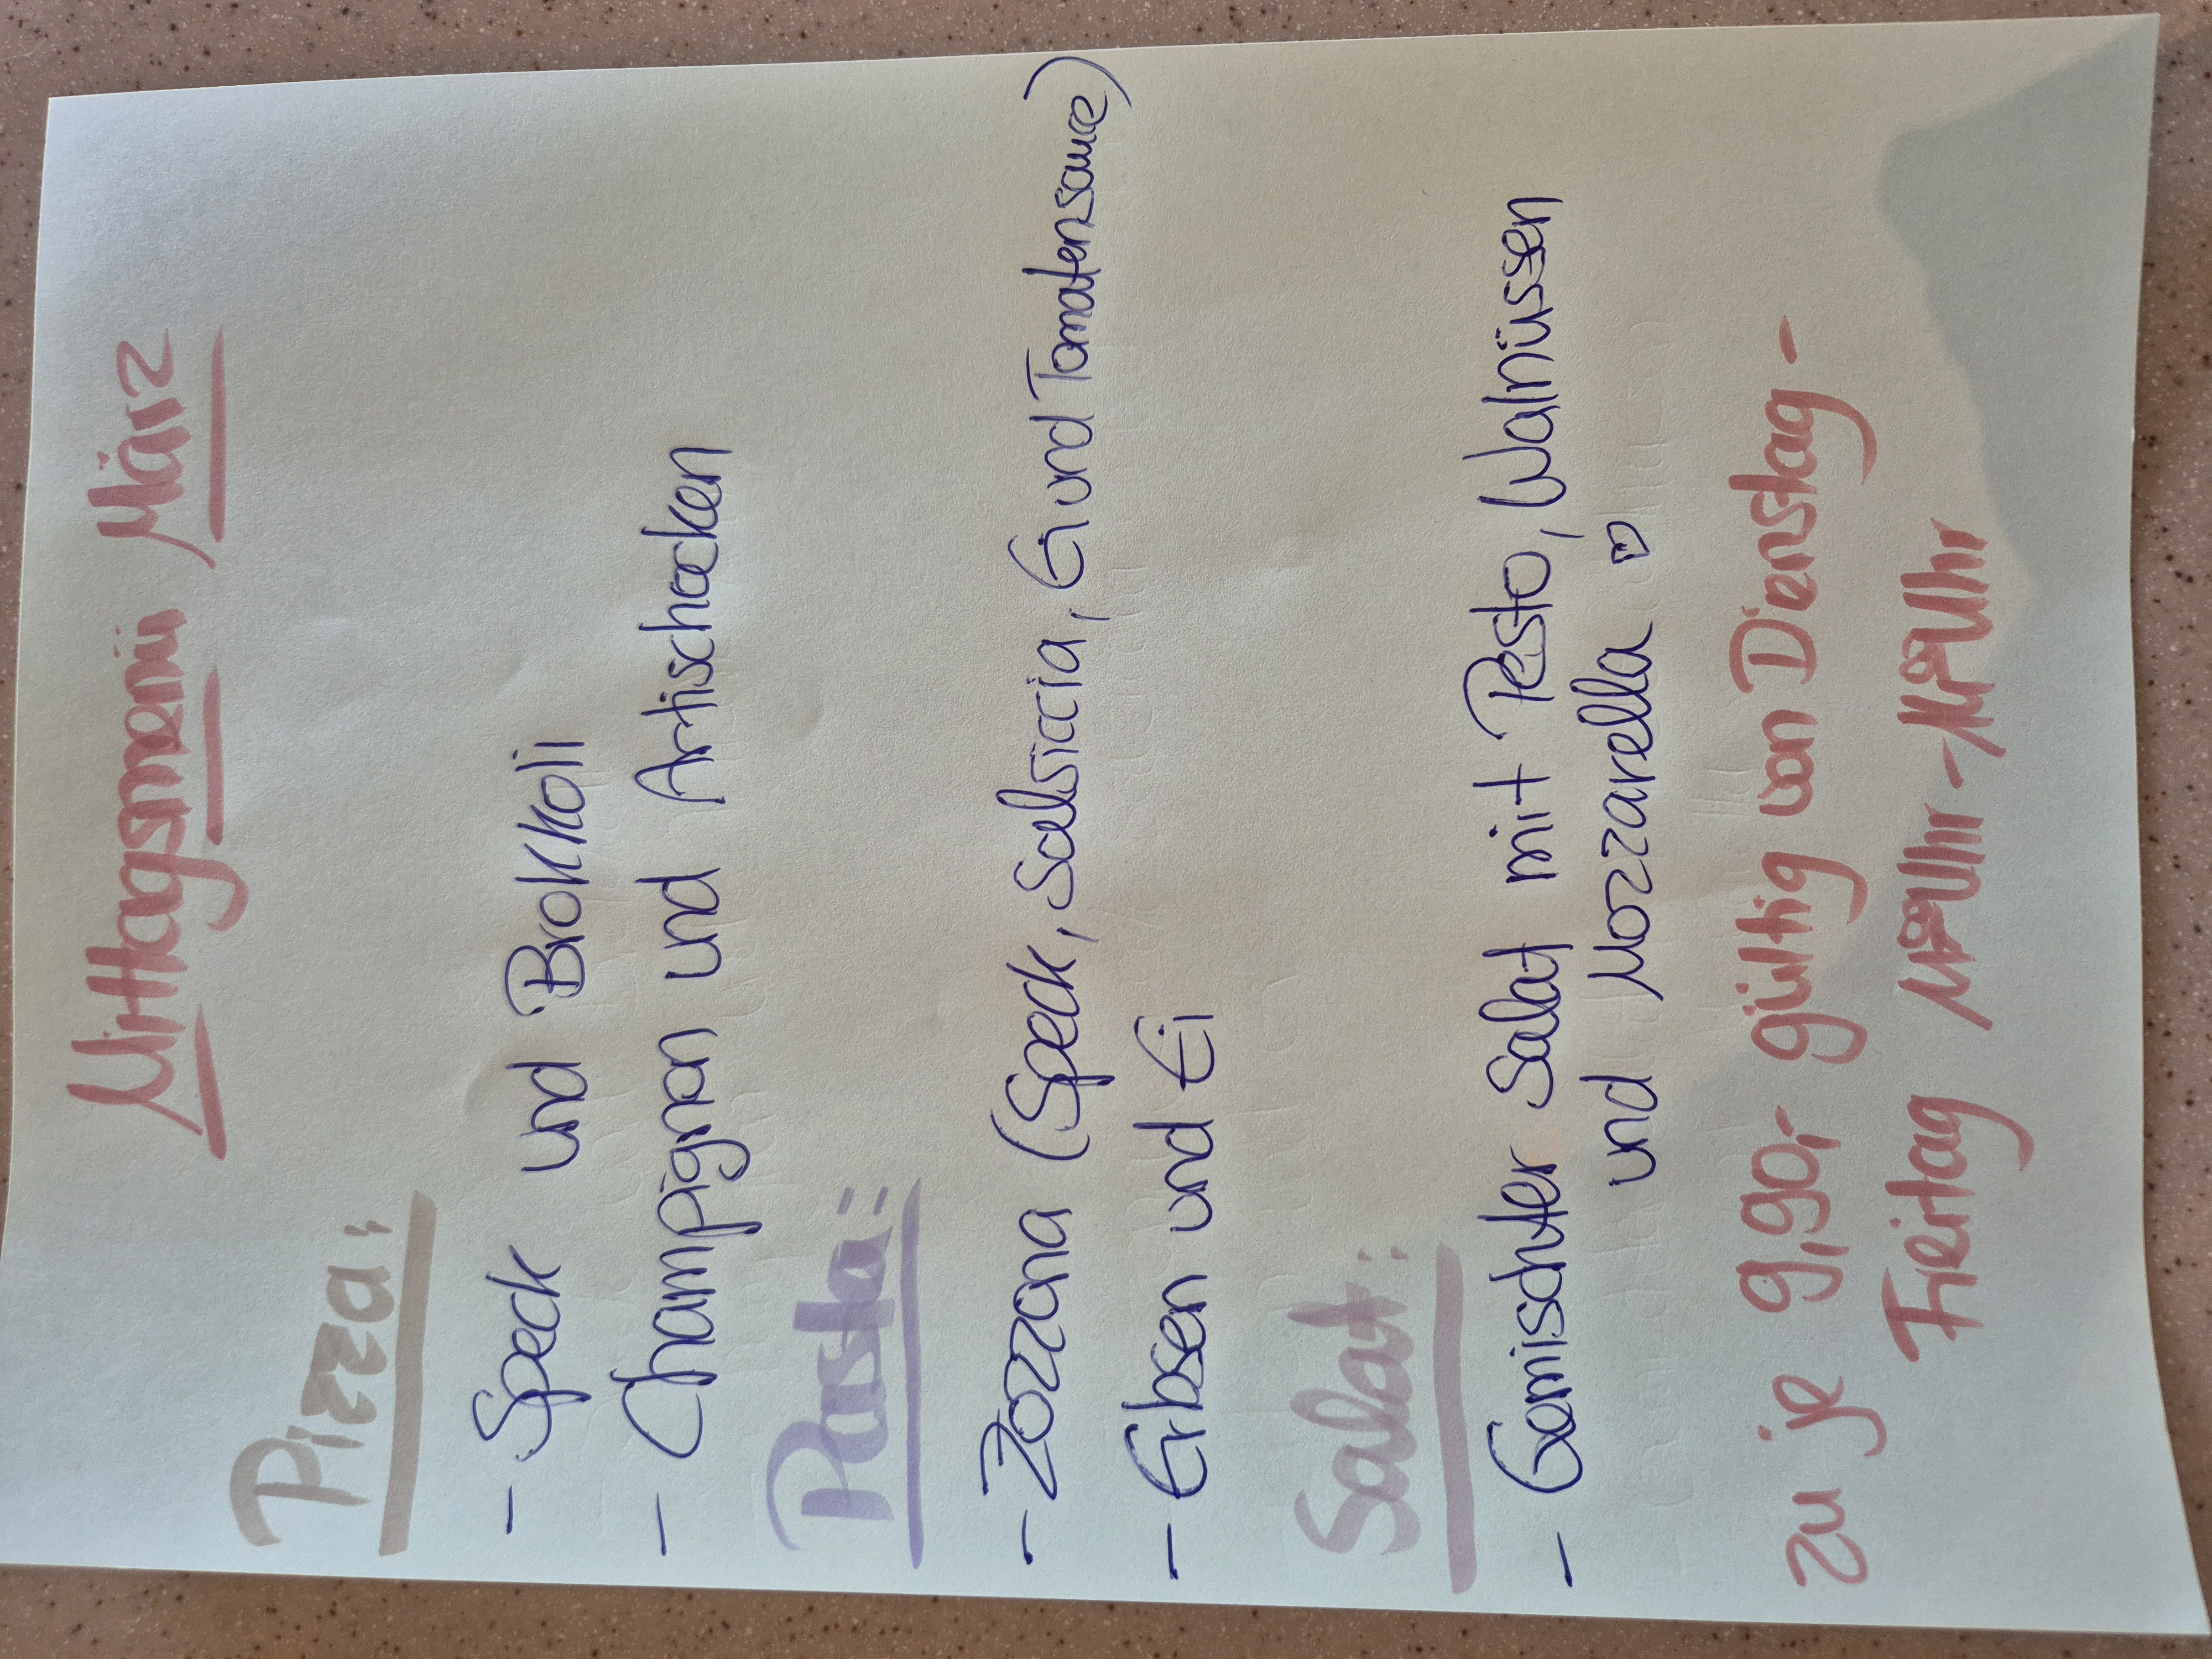 Mittagsmenü März
Pizza:
- Speck und Brokkoli
- Champignon und Artischocken
Pasta:
- Zozzona (Speck, Salsiccia, Ei und Tomatensauce)
- Erbsen und Ei
Salat:
- Gemischter Salat mit Pesto, Walnüssen
und Mozzarella ♡
zu je 9,90,- gültig von Dienstag -
Freitag Uhr - Uhr